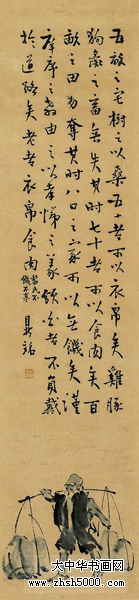 五畝之宅樹之以桑五十者可以衣帛矣雞豚
狗彘之畜無失其時七十者可以食肉矣百
畝之田勿奪其時八口之家可以無饑矣謹
庠序之教申之以孝悌之義頒白者不負戴
於道路矣老者衣帛食肉
黎民不
饑不寒
大中华书画网
www.zhsh5000.com